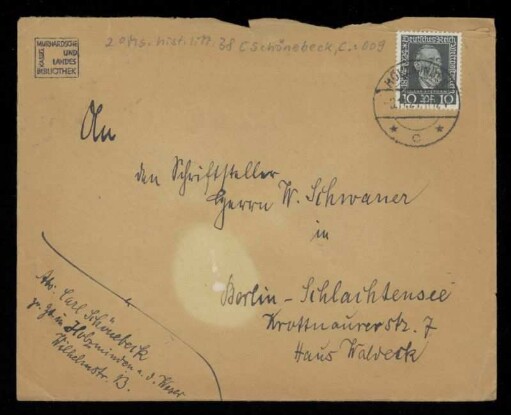 MURHARDSCHE
KASSEL UND
LANDES
BIBLIOTHEK
2° Ms. hist. litt. 38 [Schönebeck, C.: 009
Deutsches Reich
10 10
c
An
den Schriftsteller
Herrn W. Schwaner
in
Berlin-Schlachtensee
Krottnaurerstr. 7
Haus Waldeck
Abs. Carl Schönebeck
p. Zt. in Holzminden a. d. Weser
Wilhelmstr. 13.